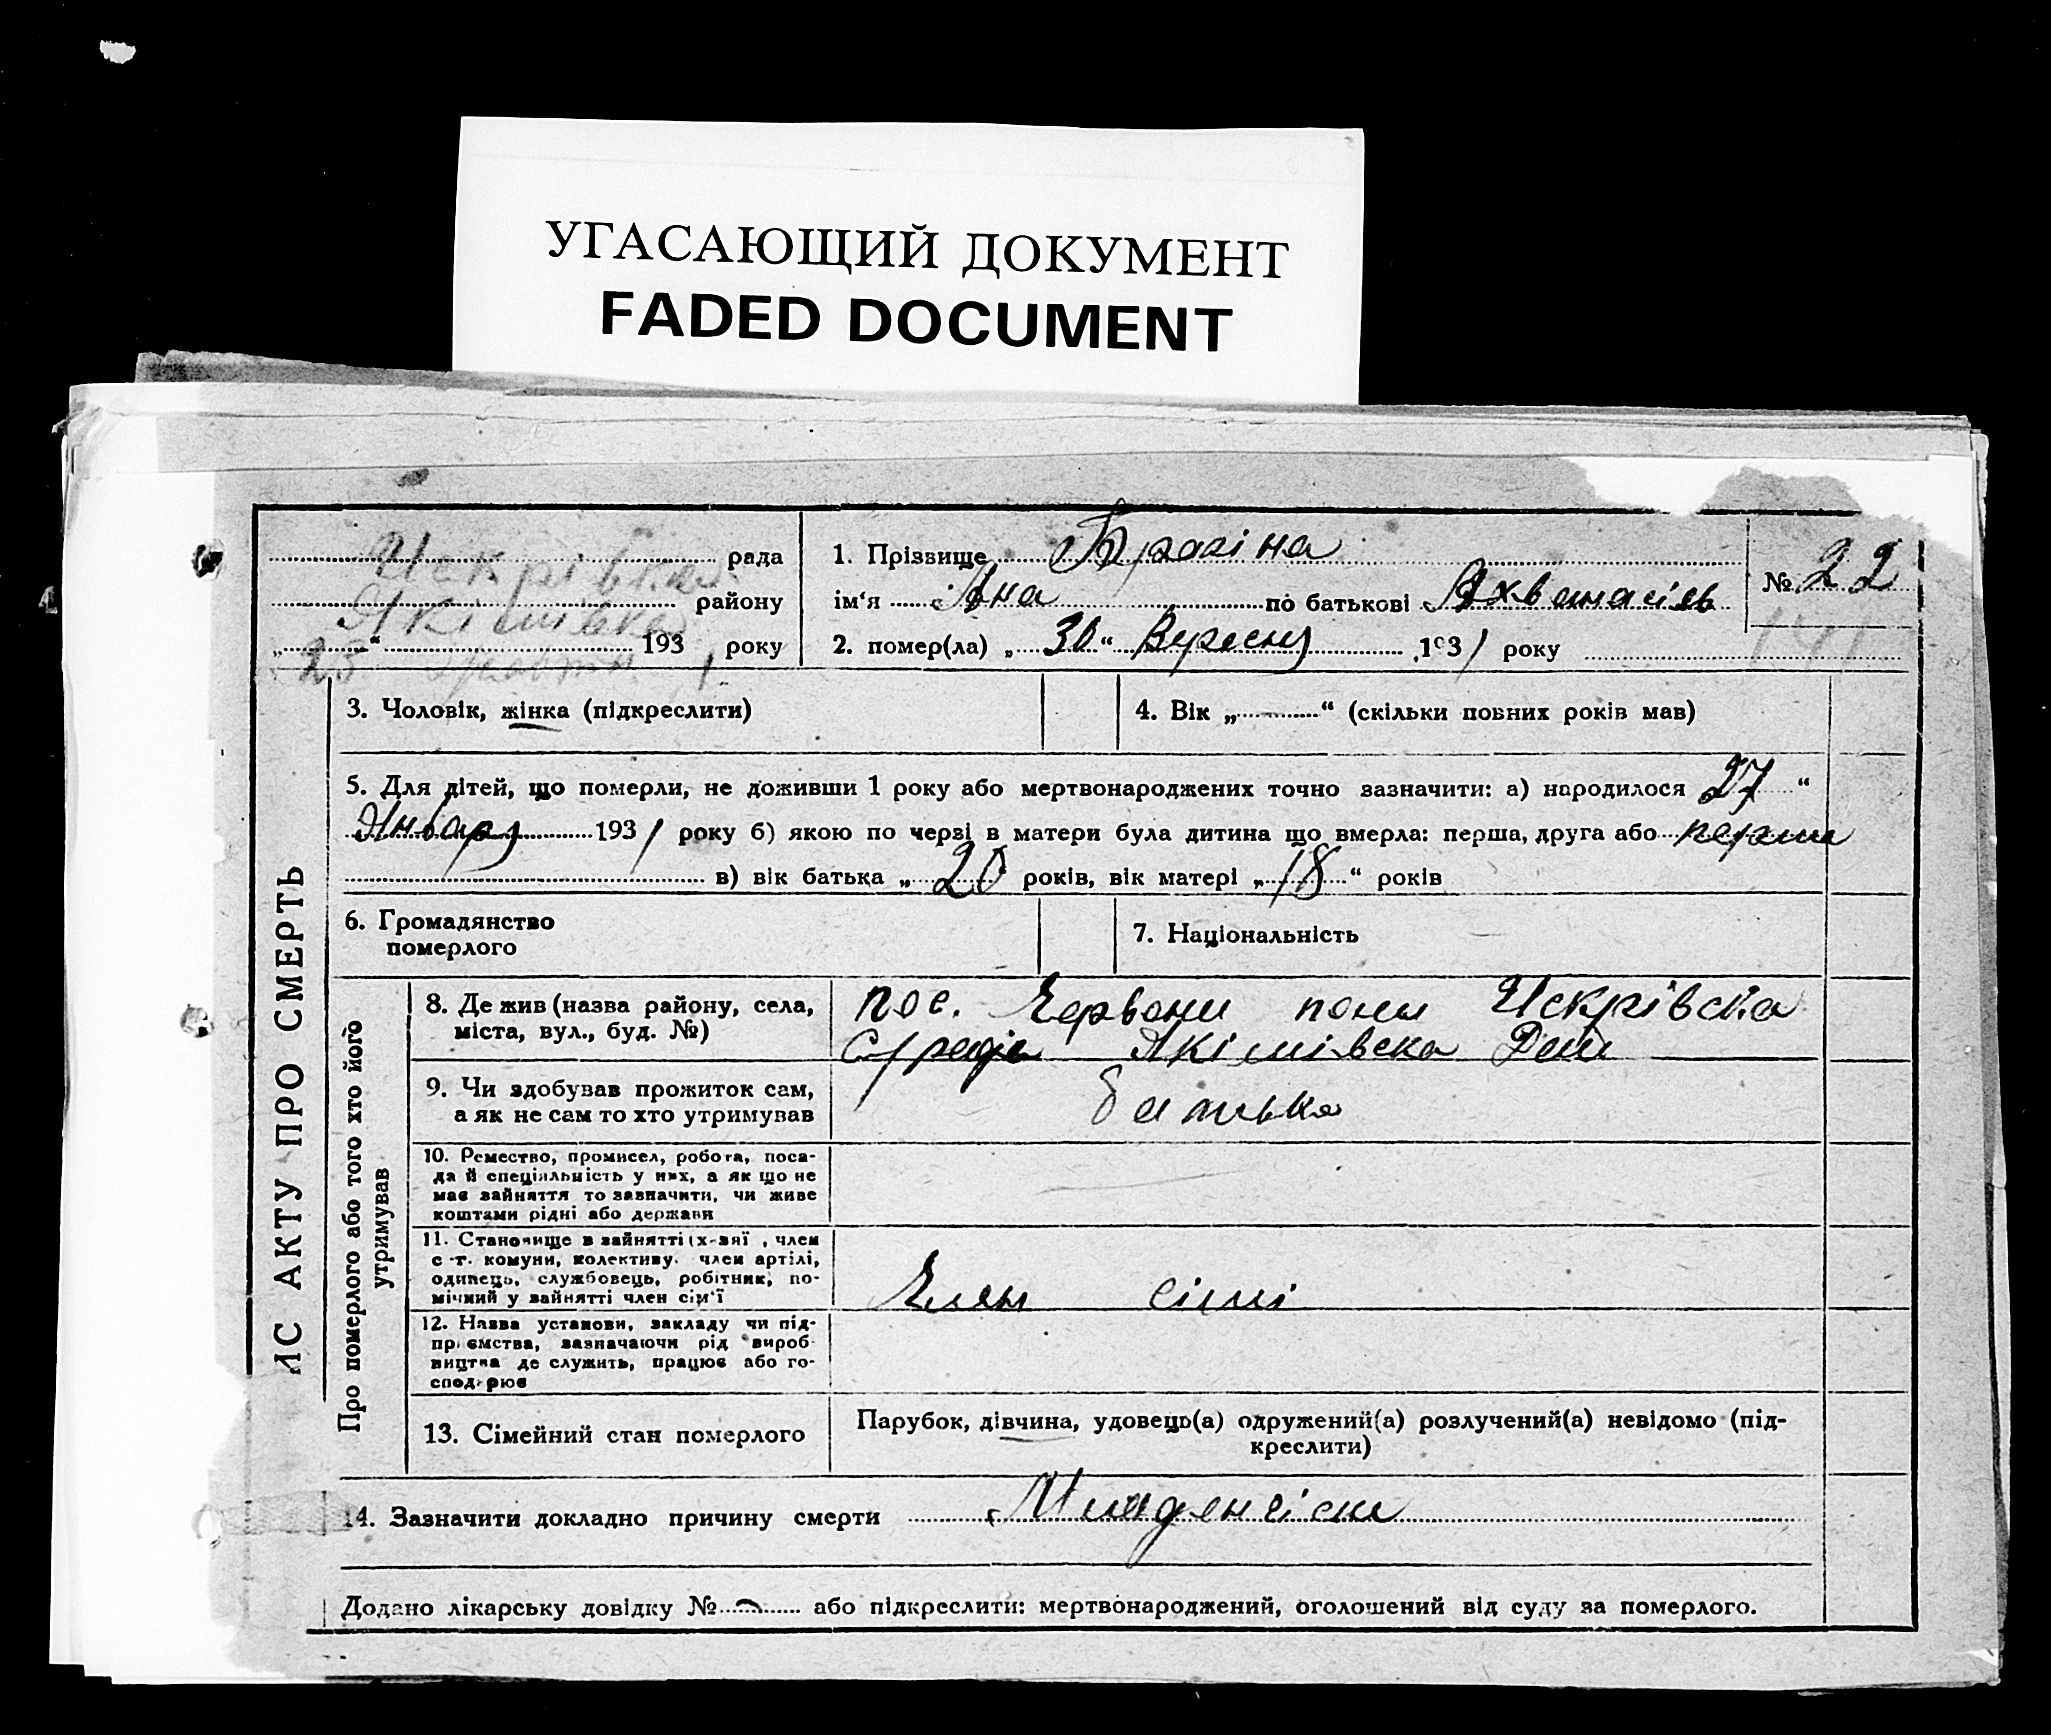 УГАСАЮЩИЙ ДОКУМЕНТ
FADED DOCUMENT
Искрівська рада
Якімівка району
„25“ 1931 року
1. Прізвище
ім‘я Ана по батькові
2. помер(ла) „30“ Вуресня 1931 року
№ 22
141
ИС АКТУ ПРО СМЕРТЬ
3. Чоловік, жінка (підкреслити)
4. Вік „ “ (скільки повних років мав)
5. Для дітей, що померли, не доживши 1 року або мертвонароджених точно зазначити: а) народилося 27 “
Января 1931 року б) якою по черзі в матери була дитина що вмерла: перша, друга або перша
в) вік батька „20 років, вік матері „18“ років
6. Громадянство
померлого
7. Національність
Про померлого або того хто його
утримував
8. Де жив (назва району, села,
міста, вул., буд. №)
пос. Червони поли Искрівска
С/ради Якімівска
9. Чи здобував прожиток сам,
а як не сам то хто утримував
батько
10. Ремество, промисел, робота, поса-
да й спеціяльність у них, а як що не
має зайняття то зазначити, чи живе
коштами рідні або держави
11. Становище в зайнятті (х-вяї , член
с -т. комуни, колективу. член артілі,
одинець, службовець, робітник, по-
мічний у зайнятті член сім‘ї
Член сімі
12. Назва установи, закладу чи під-
приємства, зазначаючи рід вироб-
ництва де служить, працює або го-
сподарює
13. Сімейний стан померлого
Парубок, дівчина, удовець(а) одружений(а) розлучений(а) невідомо (під-
креслити)
14. Зазначити докладно причину смерти
Додано лікарську довідку № або підкреслити: мертвонароджений, оголошений від суду за померлого.